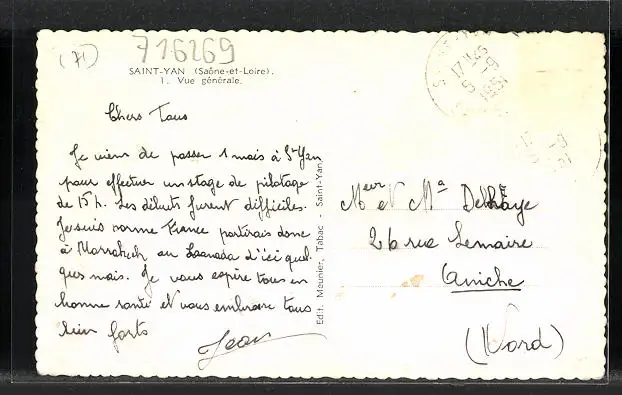 (71)
716269
SAINT-YAN (Saône-et-Loire).
1. Vue générale.
Chers Tous
Je viens de passer 1 mois à St Yan
pour effectuer un stage de pilotage
de 15 h. Les débuts furent difficiles.
Je suis nommé France partirais donc
à Marrakech ou d'ici quel
ques mois. Je vous espère tous en
bonne santé et vous embrasse tous
bien forts
Jean
Edit. Meunier, Tabac - Saint-Yan
Meur et Ma Delhaye
26 rue Lemaire
Aniche
(Nord)
17 H45
5 -9
1951